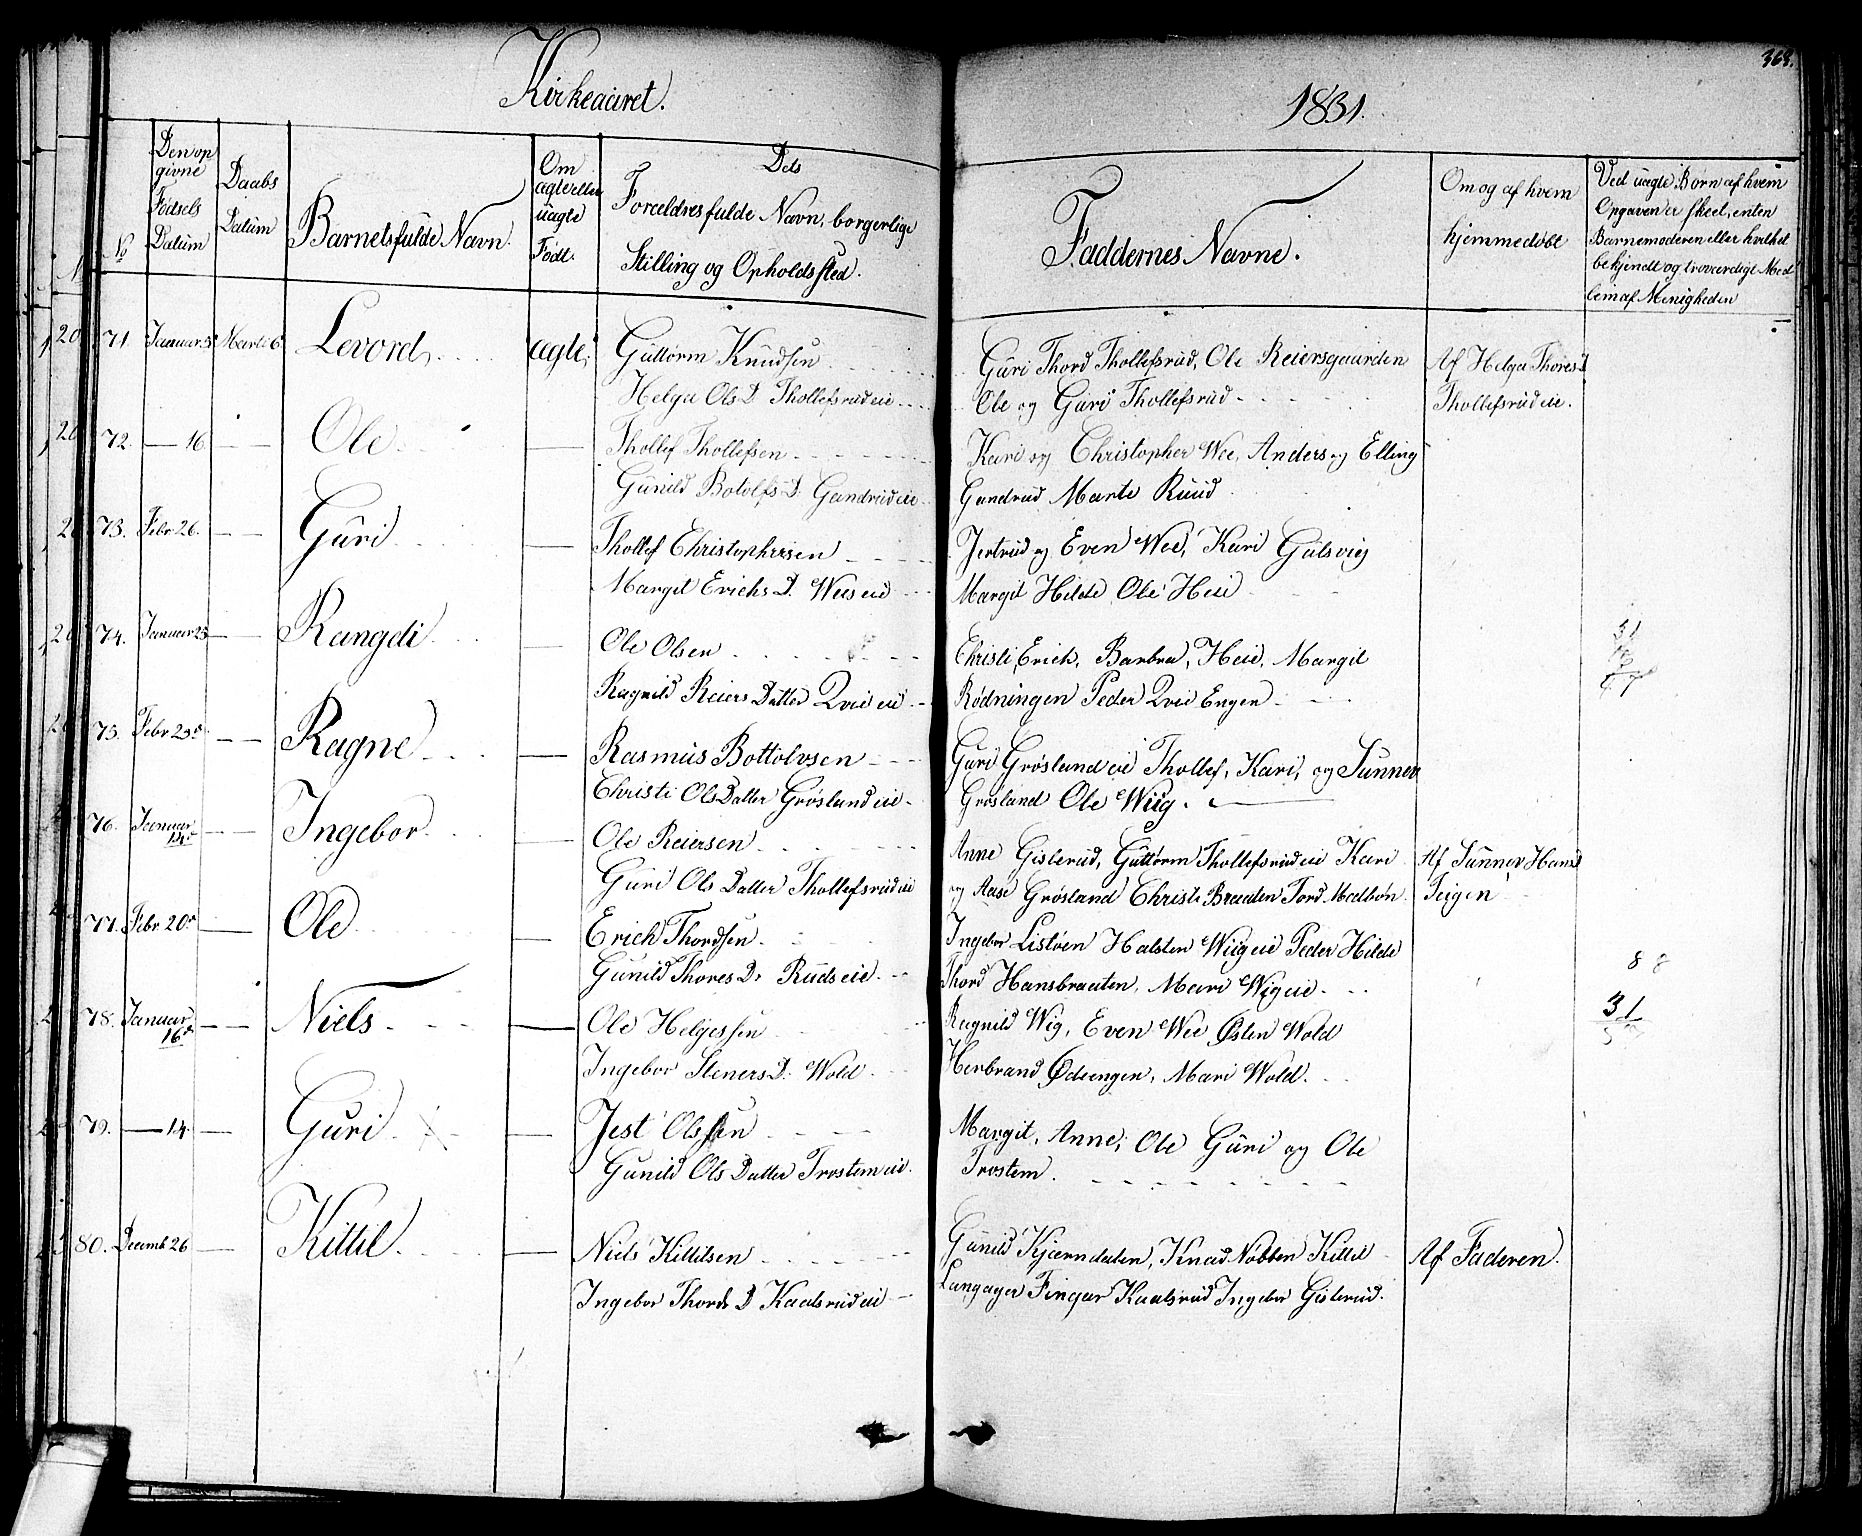 Kirkeaaret.
1831.
368.
No
Den op
givne
Fødsels
Datum
Daabs
Datum
Barnets fulde Navn.
Om
ægte eller
uægte
Født.
Dets
Forældres fulde Navn, borgerlige
Stilling og Opholdssted.
Faddernes Navne.
Om og af hvem
hjemmedøbt
Ved uægte Børn af hvem
Opgaven er skeet, enten
Barnemoderen eller hvilket
bekjendt og troværdigt Med
lem af Menigheden
71. Januar 3 Marts 6 Levord ægte, Guttorm Knudsen Guri Thord Thollefsrud, Ole Reiersgaarden Af Helga Thores D
Helga Ols D. Thollefsrud eie Ole og Guri Thollefsrud Thollefsrud eie.
72. — 16. — Ole — Thollef Thollefsen Kari og Christopher Wee, Anders og Elling
Gunild Botolfs D. Gandrud eie Gandrud Marte Ruud
73. Febr 26. — Guri — Thollef Christophersen Jertrud og Even Wee, Kari Gulsvig
Margit Erichs D. Wees eie Margit Hilde Ole Heie
74. Januar 25 — Rangdi — Ole Olsen Christi, Erich, Barbra, Heie, Margit 31
Ragnild Reiers Datter Qvie eie Rødningen Peder Qvie Engen
75. Febr 23d — Ragne — Rasmus Bottolvsen Guri Grøsland eie Thollef, Kari, og Sunnev
Christi Ols Datter Grøsland eie Grøsland Ole Wiig.
76. Januar — Ingebor — Ole Reiersen Anne Gislerud, Guttorm Thollefsrud eie Kari Af Sunnev Hans D
Guri Ols Datter Thollefsrud eie og Aase Grøsland Christi Braaten Tord Medbøn Teigen
77. Febr 20d — Ole — Erich Thordsen. Ingebor Listøen Halsten Wiig eie Peder Hilde
Gunild Thores Dr Ruds eie. Thord Hansbraaten, Mari Wig eie. 8 8
78. Januar 16d — Niels — Ole Helgessen Ragnild Wig, Even Wee Østen Wold 31
Ingebor Steners D. Wold Herbrand Ødeengen, Mari Wold.
79. — 14 — Guri — Jest Olssen Margit, Anne, Ole Guri og Ole
Gunild Ols Datter Trostem eie. Trostem.
80. Decemb 26 — Kittil — Niels Kittilsen Gunild Kjærndalen, Knud Nøbben Kittil Af Faderen.
Ingebor Thords D Kaalsrud eie Langager Fingar Kaalsrud Ingebor Gislerud.